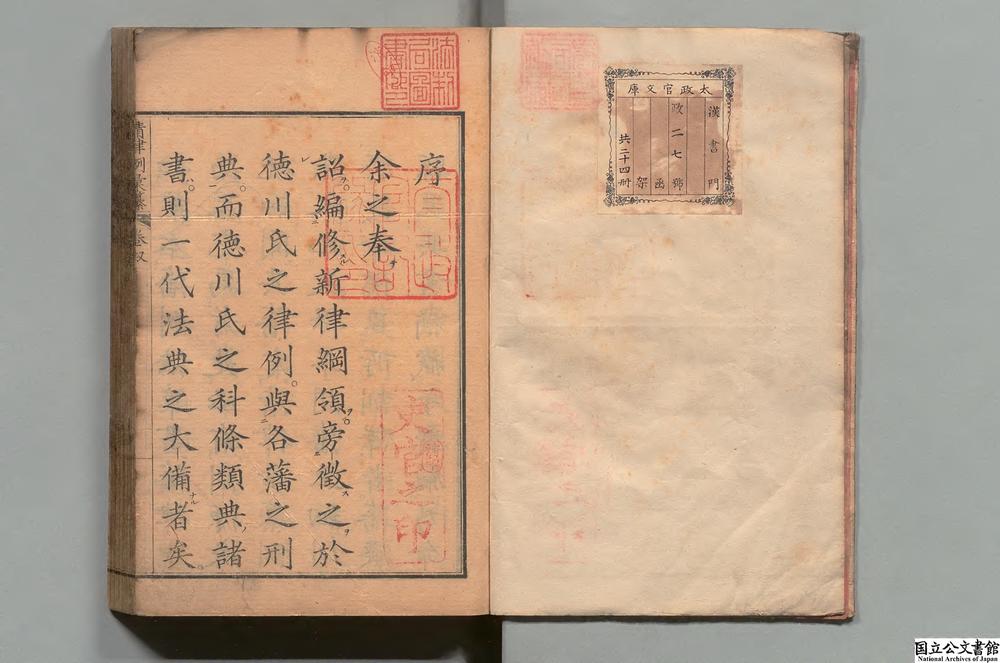 太政官文庫
漢書門
政二七號
函
架
共二十四冊
序
余之奉
詔。編修新律綱領。旁徵之於
徳川氏之律例。與各藩之刑
典。而徳川氏之科條類典諸
書。則一代法典之大備者矣。
清律例彙纂
史官之印
国立公文書館
National Archives of Japan